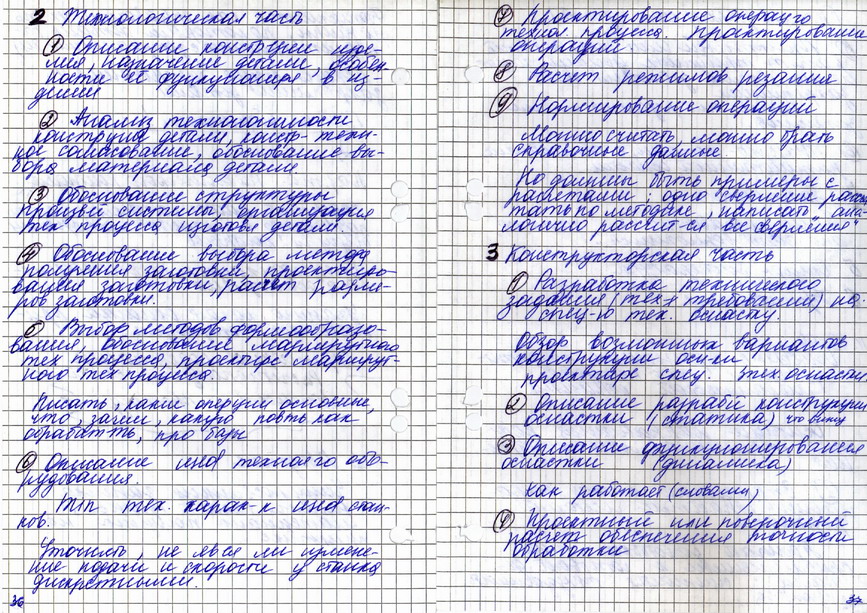 2 Технологическая часть
① Описание констр-ции изде-
лия, назначение детали, особен-
ности её функционир в из-
делии
② Анализ технологичности
конструкц детали, констр-техни-
кое обоснование, обоснование вы-
бора материала детали
③ Обоснование структуры
произв системы, организация
тех процесса изготовл детали
④ Обоснование выбора метода
получения заготовки, проектиро-
вания заготовки, расчет разме-
ров заготовки.
⑤ Выбор методов формообразо-
вания, обоснование маршрутного
тех процесса, проектир маршрут-
ного тех процесса.
Писать, какие операции основные,
что, зачем, какую пов-ть как
обработать, про базы
⑥ Описание исп технол го обо-
рудования.
min тех. харак-к исп стан-
ков.
Уточнить, не явл ли измене-
ние подачи и скорости у станка
дискретными.
36
⑦ Проектирование операц го
технол процесса. Проектирование
операций.
⑧ Расчет режимов резания
⑨ Нормирование операций
Можно считать, можно брать
справочные данные
Но должны быть примеры с
расчетами; одно сверление расчи-
тать по методике, написать "ана-
логично рассчит-ся все сверления"
3 Конструкторская часть
① Разработка технического
задания (тех требования) на
спец-ю тех. оснастку
Обзор возможных вариантов
конструкции осн-ки
проектир спец. тех. оснастки
② Описание разраб конструкции
оснастки (статика) что вижу
③ Описание функционирования
оснастки (динамика)
как работает (словами)
④ Проектный или поверочный
расчет обеспечения точности
обработки
37